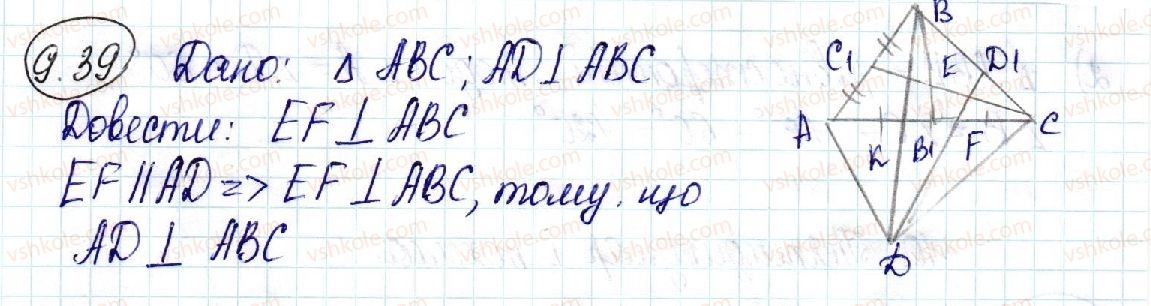 9.39 Дано: Δ ABC; AD⊥ABC
Довести: EF⊥ABC
EF||AD=> EF⊥ABC, тому що
AD⊥ ABC
B
C1
E
D1
A
K
B1
F
C
D